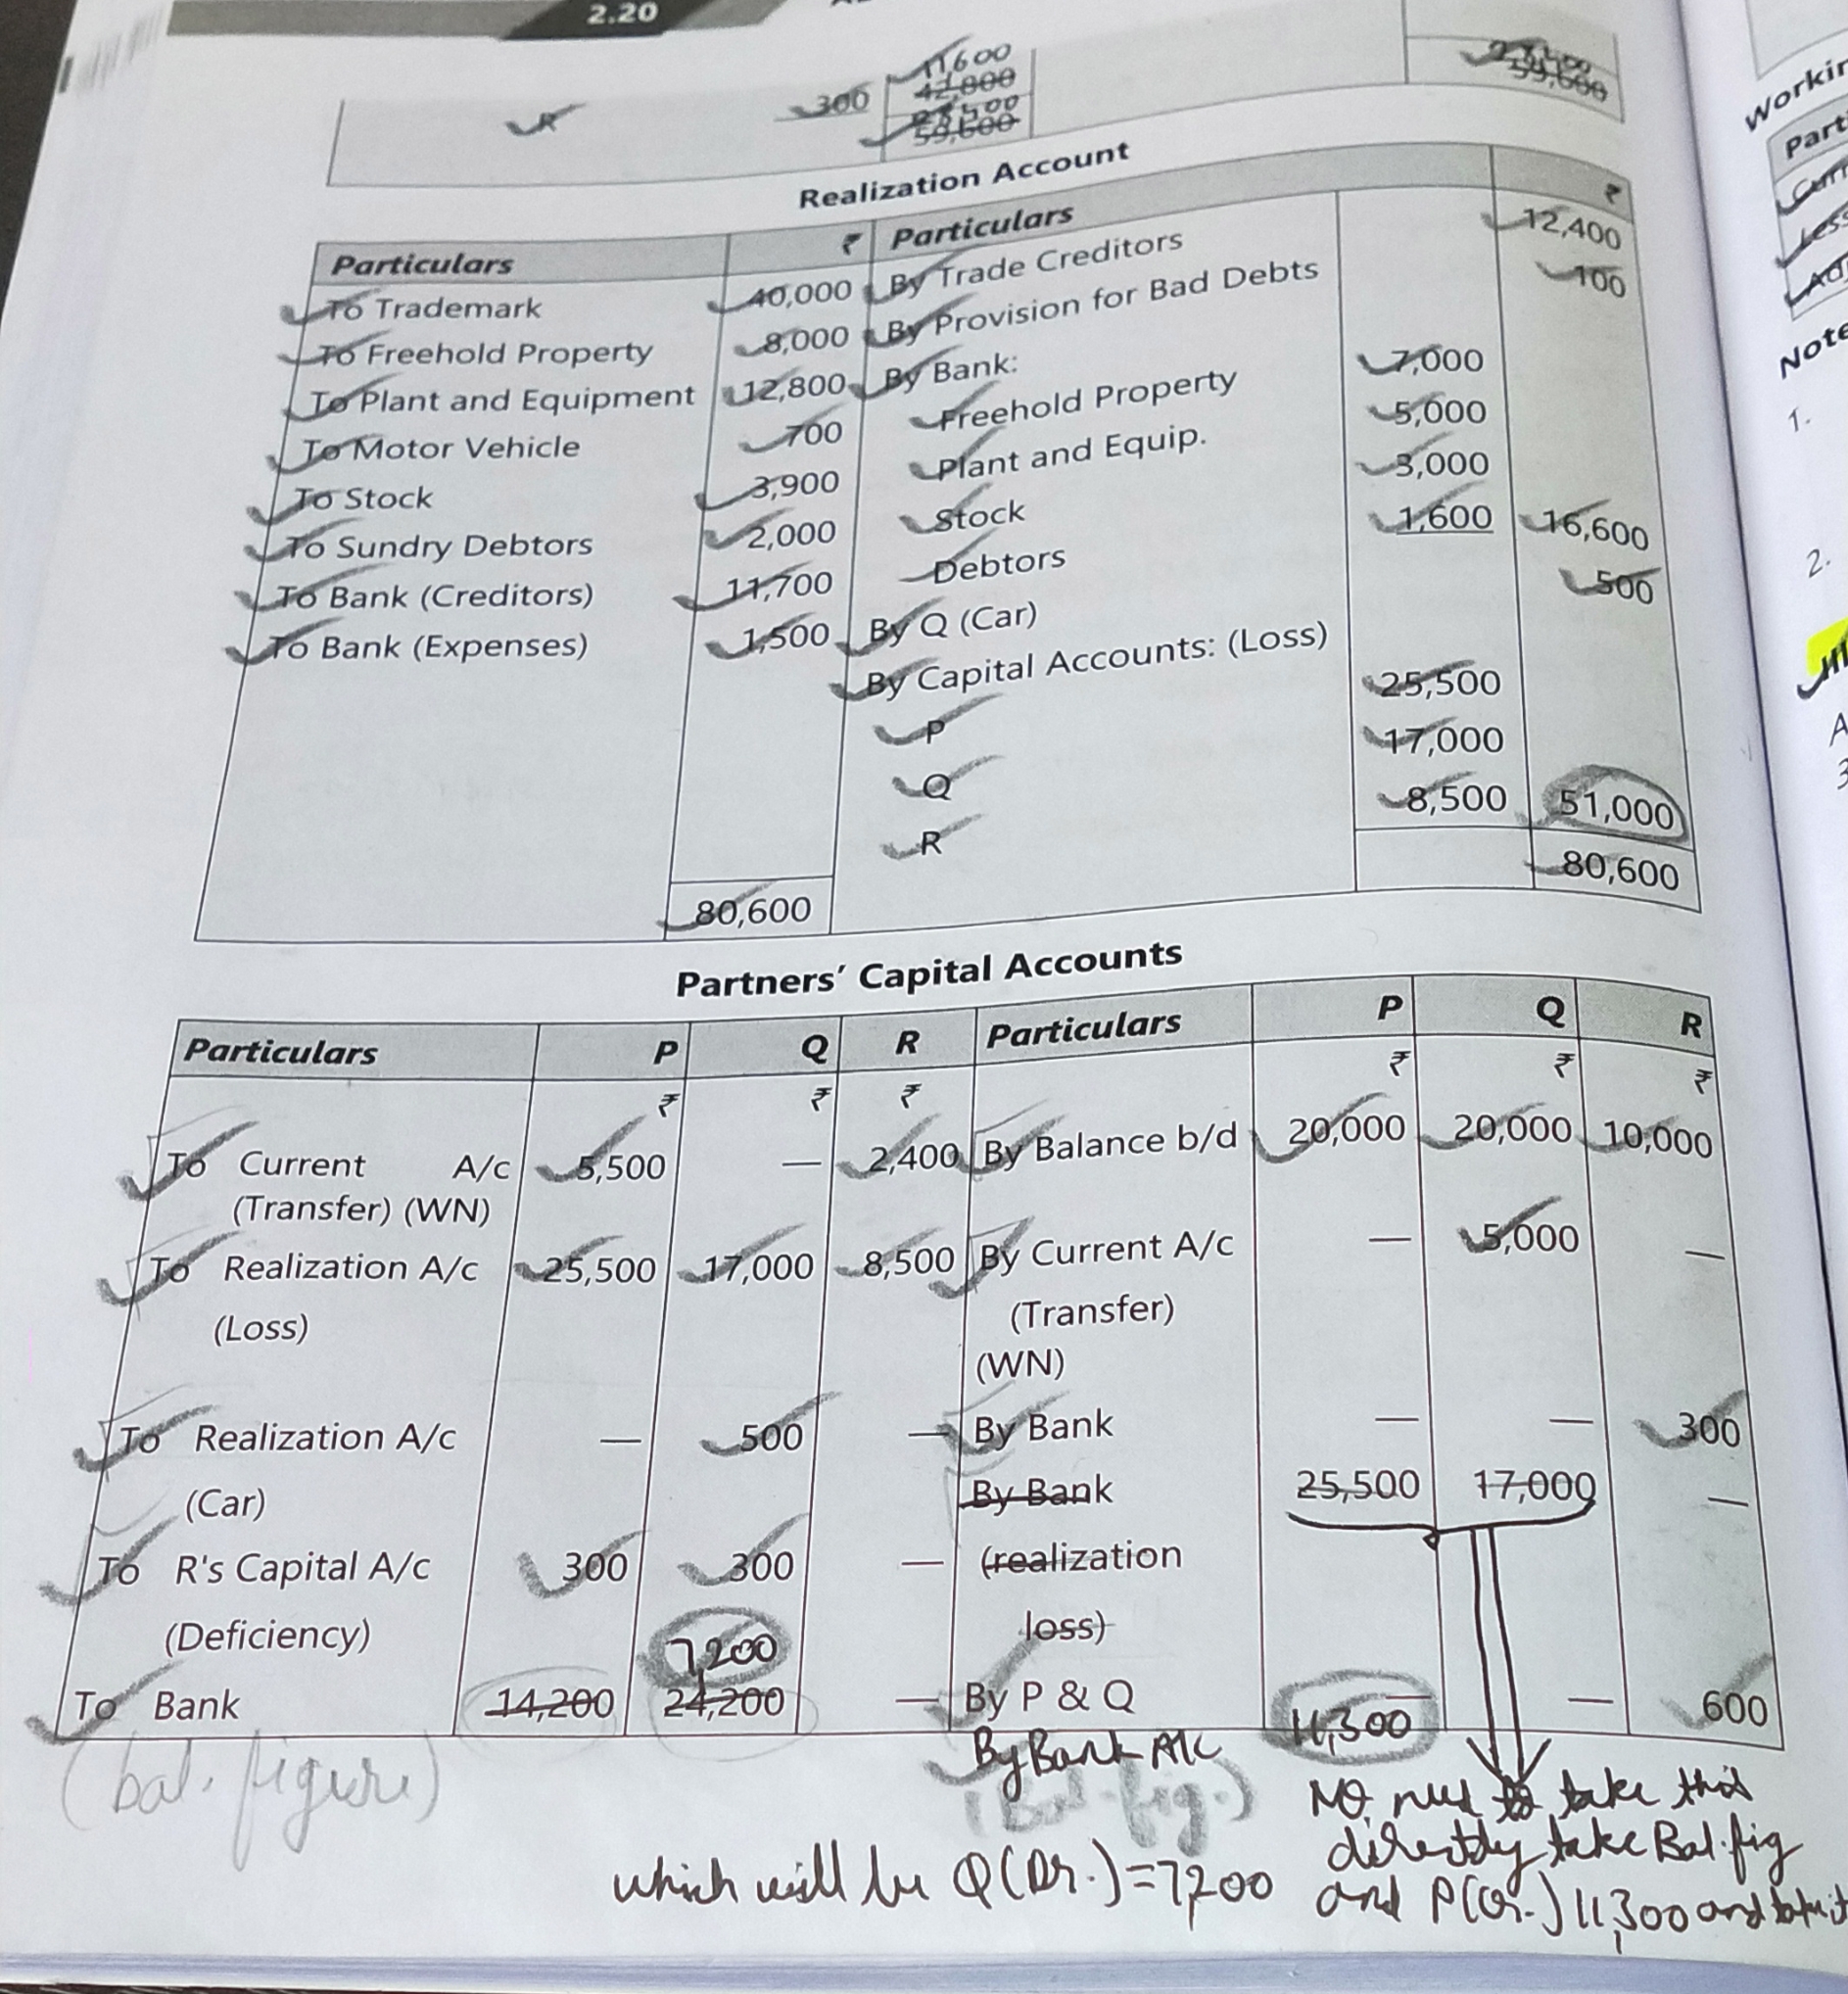 2.20
11,600
42,800
R 300
59,600 59,600
Realization Account
Particulars ₹ Particulars ₹
To Trademark 40,000 By Trade Creditors 12,400
To Freehold Property 8,000 By Provision for Bad Debts 100
To Plant and Equipment 12,800 By Bank:
To Motor Vehicle 700 Freehold Property 7,000
To Stock 3,900 Plant and Equip. 5,000
To Sundry Debtors 2,000 Stock 3,000
To Bank (Creditors) 11,700 Debtors 1,600 16,600
To Bank (Expenses) 1,500 By Q (Car) 500
By Capital Accounts: (Loss)
P 25,500
Q 17,000
R 8,500 51,000
80,600 80,600
Partners' Capital Accounts
Particulars P Q R Particulars P Q R
₹ ₹ ₹ ₹ ₹ ₹
To Current A/c 5,500 — 2,400 By Balance b/d 20,000 20,000 10,000
(Transfer) (WN)
To Realization A/c 25,500 17,000 8,500 By Current A/c — 5,000 —
(Loss) (Transfer)
(WN)
To Realization A/c — 500 — By Bank — — 300
(Car) By Bank 25,500 17,000 —
To R's Capital A/c 300 300 — (realization
(Deficiency) loss)
7,200
To Bank 14,200 24,200 — By P & Q — — 600
By Bank A/c 11,300
(bal. figure) (Bal. fig.)
No need to take this
directly take Bal. fig
which will be Q (Dr.) = 7,200 and P (Cr.) 11,300 and
Workin
Part
Curr
Less
Ad
Note
1.
2.